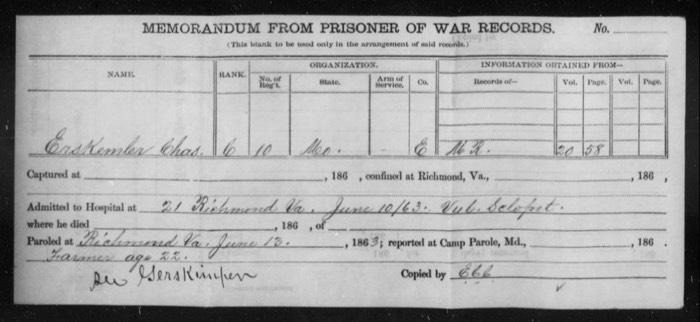 MEMORANDUM FROM PRISONER OF WAR RECORDS. No.
(This blank to be used only in the arrangement of said records.)
NAME. RANK. ORGANIZATION. INFORMATION OBTAINED FROM—
No. of Reg't. State. Arm of Service. Co. Records of— Vol. Page. Vol. Page.
Erskemler Chas. C 10 Mo. - E M R. 20 58
Captured at , 186 , confined at Richmond, Va., , 186 ,
Admitted to Hospital at 21 Richmond Va. June 10/63. Vul. Sclopet.
where he died , 186 , of
Paroled at Richmond Va. June 13. , 1863; reported at Camp Parole, Md., , 186 .
Farmer age 22.
see Gerskimper Copied by